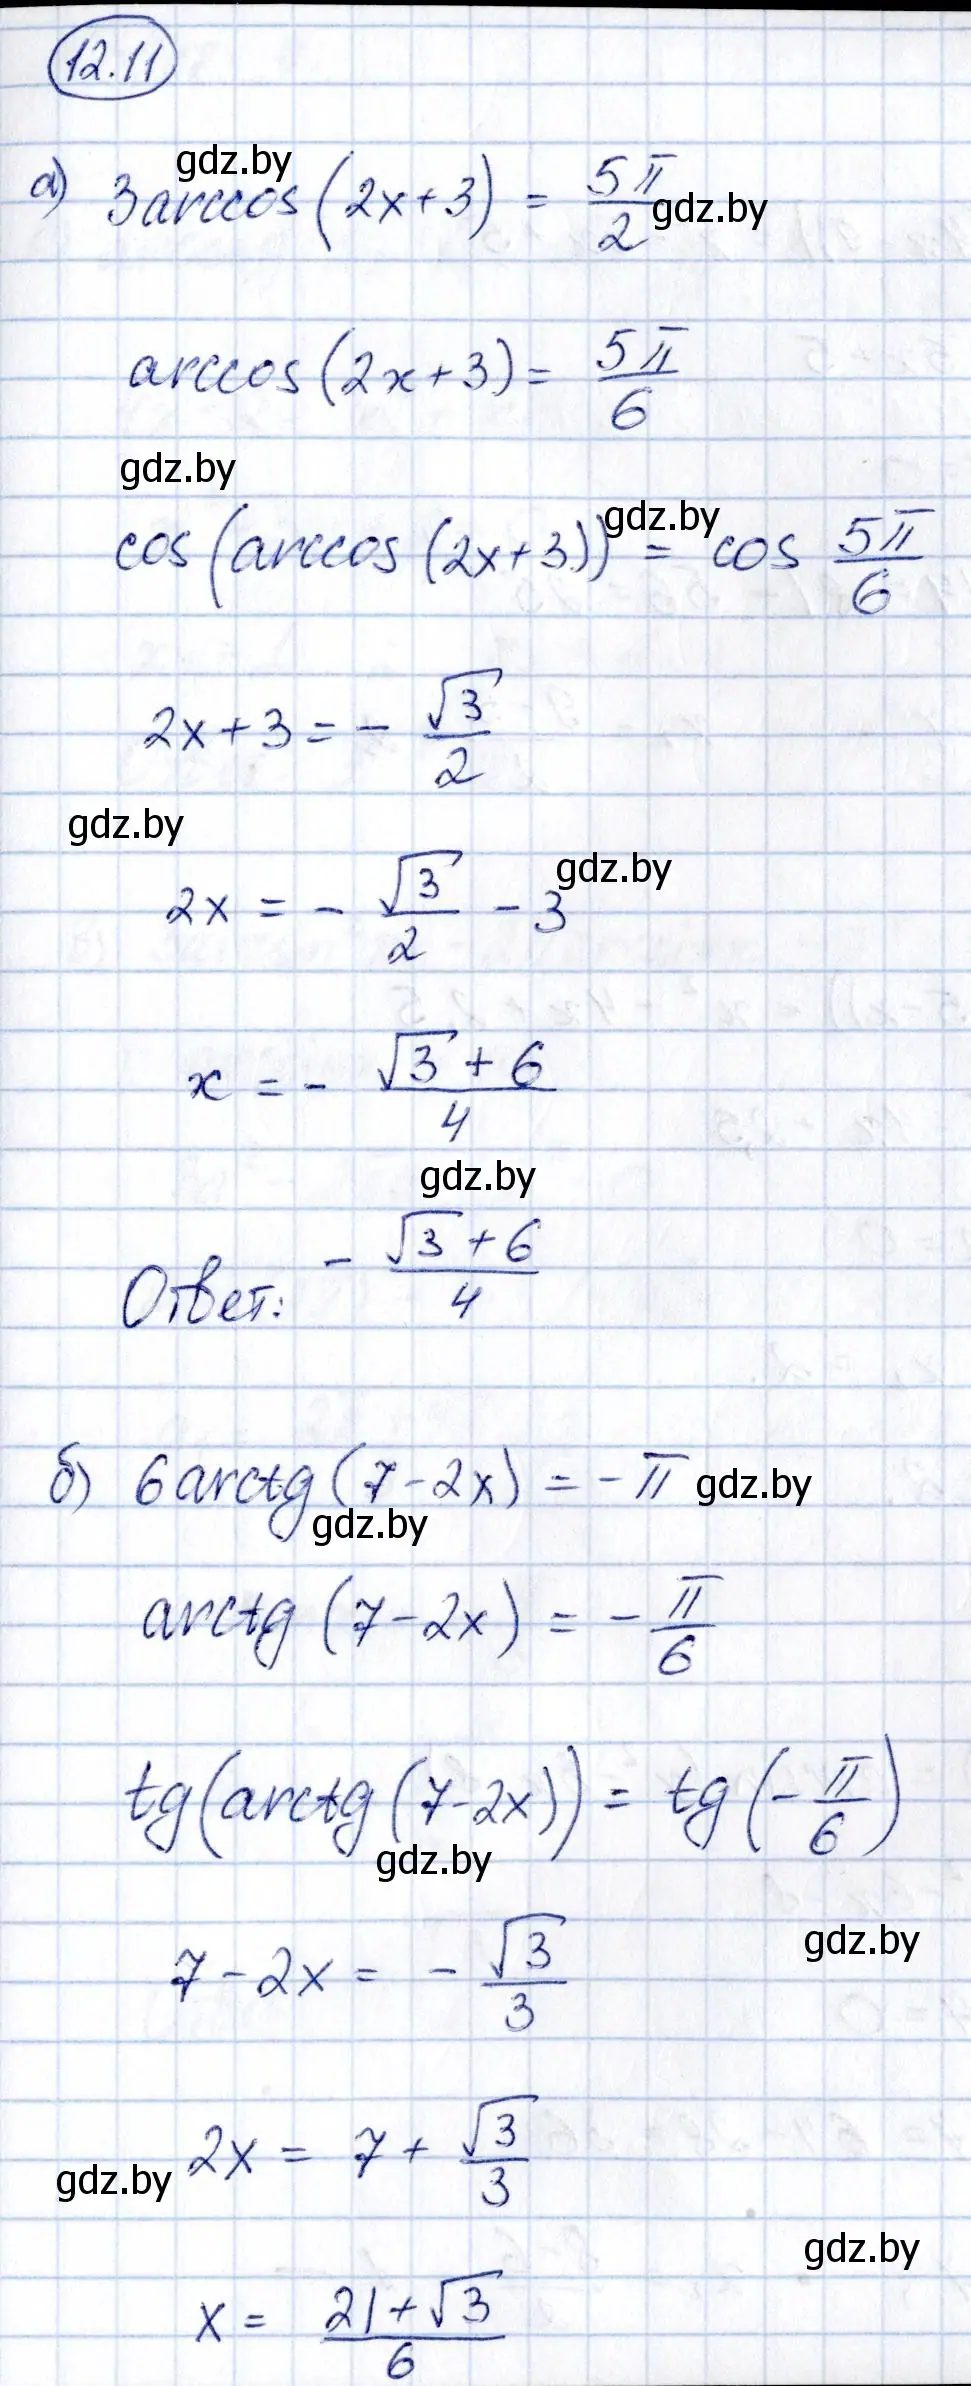 12.11
gdz.by
а) 3 arccos (2x+3) = 5π/2 gdz.by
arccos (2x+3) = 5π/6
gdz.by
gdz.by
cos (arccos (2x+3)) = cos 5π/6
2x+3 = - √3/2
gdz.by
gdz.by
2x = - √3/2 - 3
x = - (√3 + 6)/4
gdz.by
Ответ: - (√3 + 6)/4
б) 6 arctg (7-2x) = - π gdz.by
gdz.by
arctg (7-2x) = - π/6
tg (arctg (7-2x)) = tg (- π/6)
gdz.by
gdz.by
7-2x = - √3/3
2x = 7 + √3/3
gdz.by
gdz.by
x = (21+√3)/6